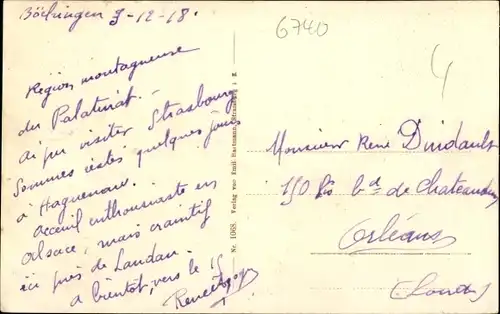 Böchingen 9-12-18.
Région montagneuse
du Palatinat.
ai pu visiter Strasbourg
Sommes restés quelques jours
à Haguenau.
accueil enthousiaste en
Alsace, mais craintif
ici près de Landau.
a bientôt, vers le 15
René
Nr. 1068 Verlag von Emil Hartmann, Strassburg i. E.
6740
4
Monsieur René Dindault
150 bis bd de Chateaudun
Orléans
(Loiret)